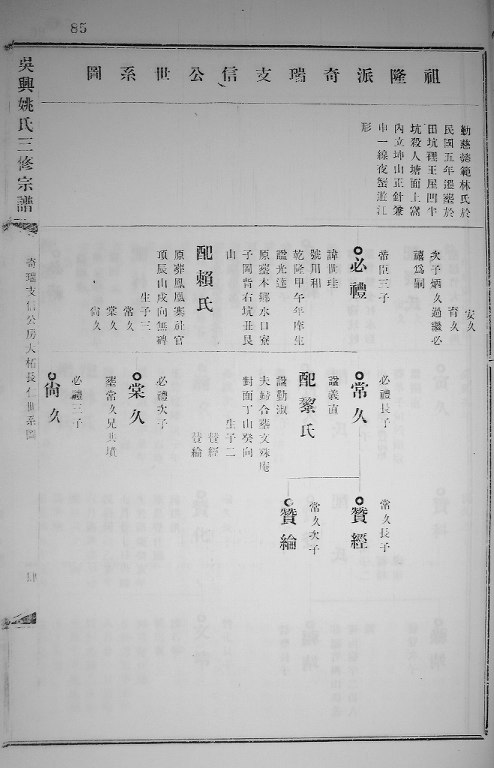 85
祖隆派奇瑞支信公世系圖
勤慈謚範林氏於
民國五年遷葬於
田坑裡王屋凹牛
坑殺人塘面上窩
內立坤山正針兼
申一線夜蟹遊江
形
安久
育久
次子炳久過繼必
禧為嗣
必禮
帝臣三子
諱世珪
號用和
乾隆甲午年庠生
謚光達
原葬本鄉水口寮
子岡背右坑丑艮
山
配賴氏
原葬鳳凰寨社官
項辰山戍向無碑
生子三
常久
棠久
尙久
常久
必禮長子
謚義直
配黎氏
謚勤淑
夫婦合墓文殊庵
對面丁山癸向
生子二
贊經
贊綸
棠久
必禮次子
葬常久兄共墳
尙久
必禮三子
贊經
常久長子
贊綸
常久次子
吳興姚氏三修宗譜
奇瑞支信公房大柘長仁世系圖